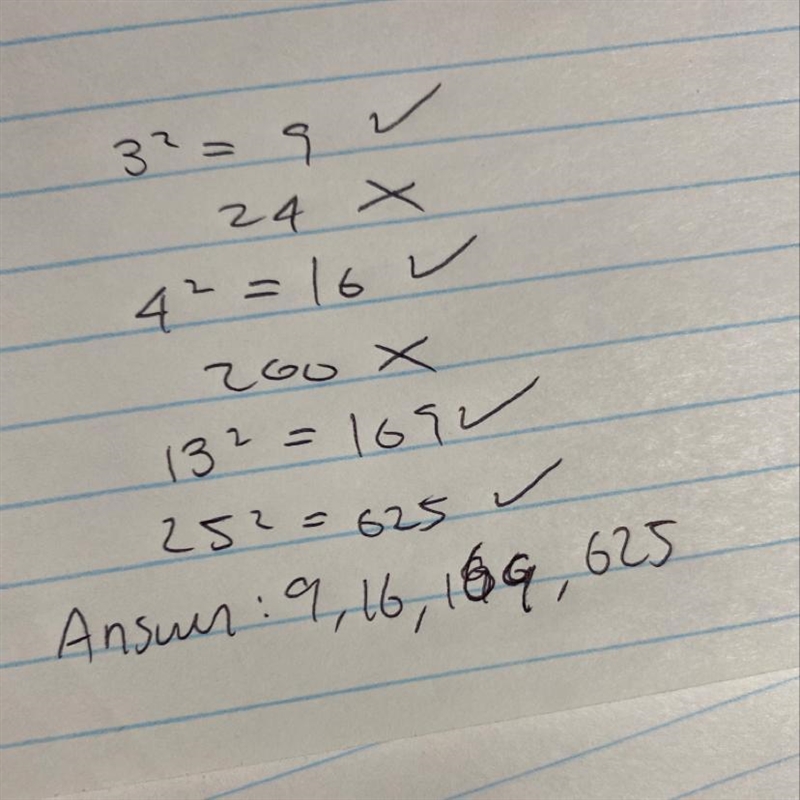 3² = 9 ✓
24 ✗
4² = 16 ✓
200 ✗
13² = 169 ✓
25² = 625 ✓
Answer: 9, 16, 169, 625